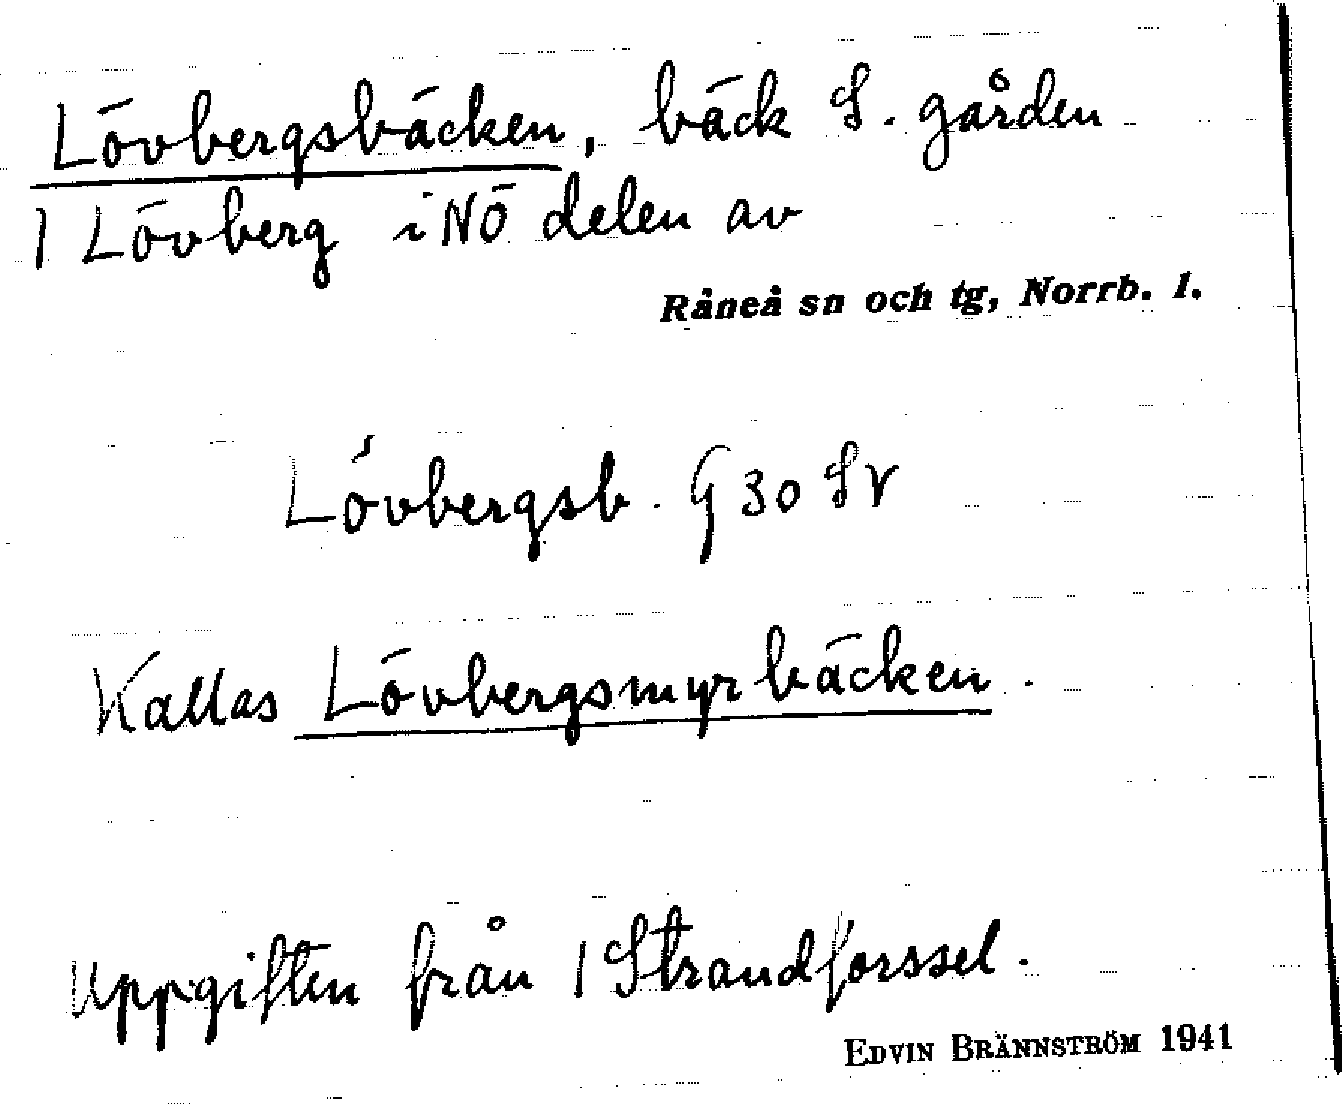 Lövbergsbäcken, bäck S. gården
1 Lövberg i NÖ delen av
Råneå sn och tg, Norrb. l.
Lövbergsb. G 30 SV
Kallas Lövbergsmyrbäcken.
Uppgiften från 1 Strandforssel.
EDVIN BRÄNNSTRÖM 1941